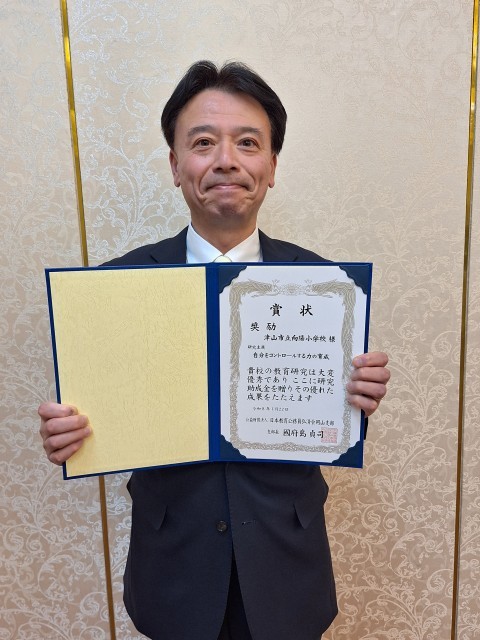 賞状
奨励
津山市立向陽小学校 様
研究主題
自分をコントロールする力の育成
貴校の教育研究は大変
優秀であり ここに研究
助成金を贈りその優れた
成果をたたえます
公益財団法人 日本教育公務員弘済会岡山支部
支部長 國府島 貞司